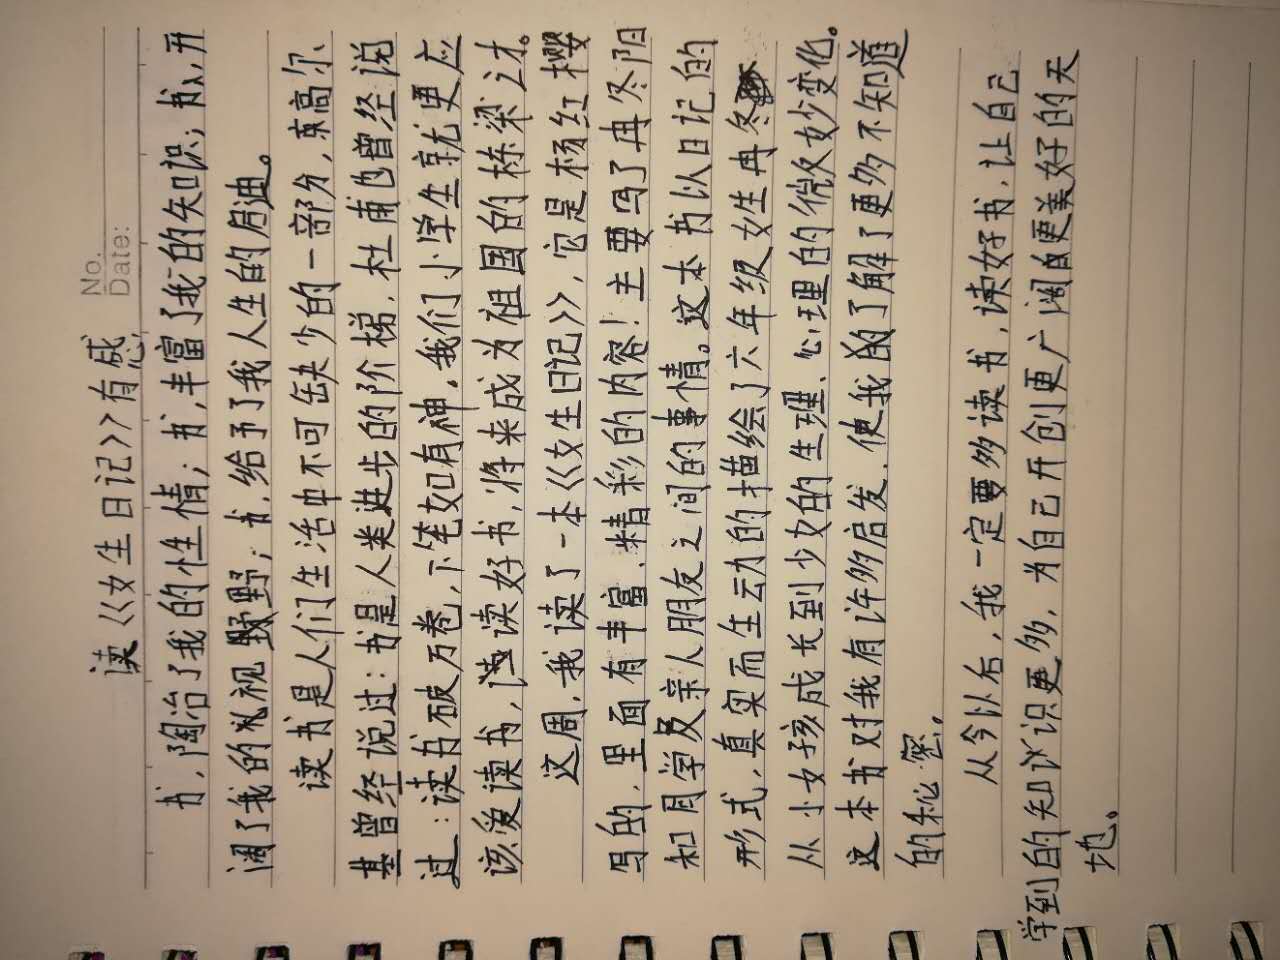 No.
Date:
读《女生日记》有感
书,陶冶了我的性情;书,丰富了我的知识;书,开
阔了我的视野;书,给予了我人生的启迪。
读书是人们生活中不可缺少的一部分,高尔
基曾经说过:书是人类进步的阶梯,杜甫也曾经说
过:读书破万卷,下笔如有神,我们小学生就更应
该爱读书,读好书,将来成为祖国的栋梁之才。
这周,我读了一本《女生日记》,它是杨红樱
写的,里面有丰富、精彩的内容!主要写了冉冬阳
和同学及亲人朋友之间的事情。这本书以日记的
形式,真实而生动的描绘了六年级女生冉冬
从小女孩成长到少女的生理、心理的微妙变化。
这本书对我有许多启发,使我了解了更多不知道
的秘密。
从今以后,我一定要多读书,读好书,让自己
学到的知识更多,为自己开创更广阔更美好的天
地。